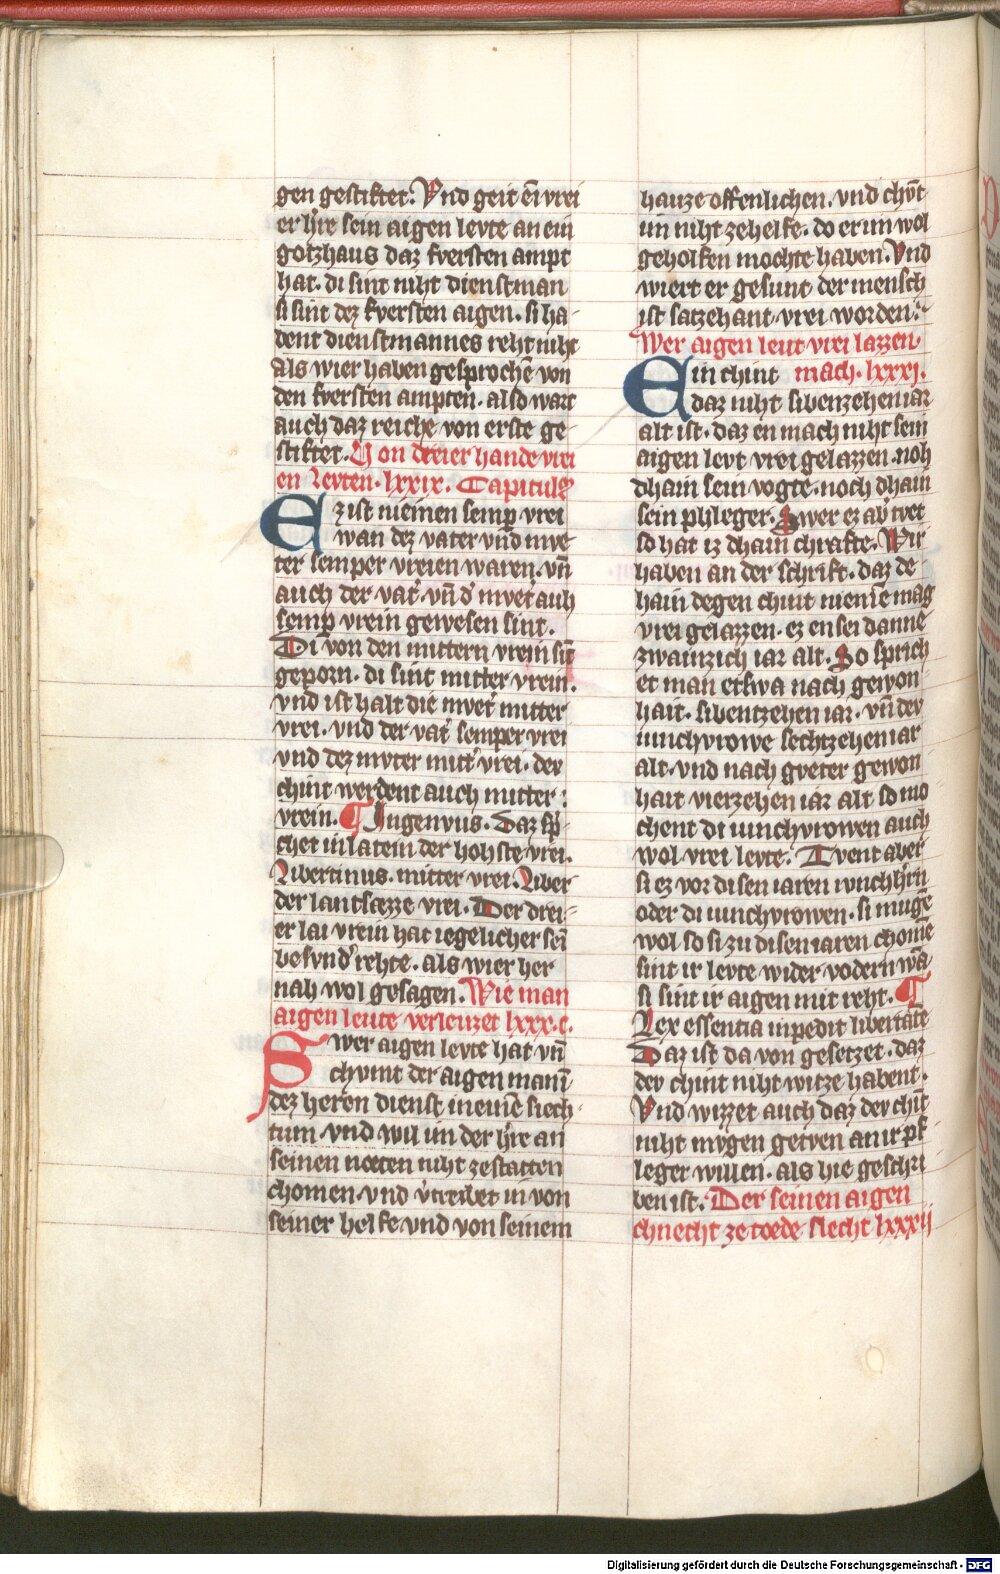 gen gestiftet. Vnd geit ein vrei
er h're sein aigen levte an ein
gotzhaus daz fversten ampt
hat. di sint niht dienstman
si sint dez fversten aigen. si ha-
bent dienstmannes reht niht
Als wier haben gesprochē von
den fversten ampten. alsd wart
auch daz reiche von erste ge-
stiftet. Von dreier hande vrei
en Levten. lxxix. Capitulū
Ez ist niemen semp̄ vrei
wan dez vater vnd mve
ter semper vreien waren. vn̄
auch der vat'. vn̄ d' mvet' auh
semp̄ vrein gewesen sint.
Di von den mittern vrein sīt
geporn. di sint mitter vrein.
vnd ist halt die mvet' mitter
vrei. vnd der vat' semper vrei
vnd dez mvter mitt' vrei. der
chint werdent auch mitter
vrein. ¶ Ingenvus. Daz sp̄
chet in latein der hohste vrei.
Libertinus. mitter vrei. Liber
der lantsæzze vrei. Der drei-
er lai vrein hat iegelicher sei
besvnd' rehte. als wier her
nah wol gesagen. Wie man
aigen leute verleuzet lxxx. c.
Swer aigen levte hat vn̄
chvmt der aigen mann
dez herren dienst in einē siech-
tum. vnd wil im der h're an
seinen nœten niht zestatten
chomen. vnd v'treibet in von
seiner helfe vnd von seinem
hauze offenlichen. vnd chvt
im niht zehelfe. do er im wol
geholfen mochte haben. Vnd
wiert er gesunt der mensch
ist satzehant. vrei worden.
Wer aigen leut vrei lazzen
Ein chint mach. lxxxi.
daz niht sibenzehen iar
alt ist. daz en mach niht sein
aigen levt vrei gelazzen. noh
dhain sein vogte. noch dhain
sein phleger. Swer ez ab' tvet
so hat iz dhain chrafte. Wir
haben an der schrift. daz de
hain degen chint niemē mag
vrei gelazzen. ez en sei danne
zwainzich iar alt. So sprich
et man etswa nach gewon
hait. sibentzehen iar. vn̄ dev
iunchvrowe sechtzehen iar
alt. vnd nach gveter gewon
hait vierzehen iar alt so mo
chent di iunchvrowen auch
wol vrei levte. Tvent aber
si ez vor disen iaren ivnchh'rn
oder di iunchvrowen. si mugē
wol so si zu disen iaren chomē
sint ir levte wider vodern wā
si sint ir aigen mit reht. ¶
Lex essentia inpedit libertatē
Daz ist da von gesetzet. daz
dev chint niht witze habent.
Vnd wizzet auch daz dev chīt
niht mvgen getven an ir pf
leger willen. als hie geschri
ben ist. Der seinen aigen
chnecht ze tœde slecht lxxxii
Digitalisierung gefördert durch die Deutsche Forschungsgemeinschaft - DFG